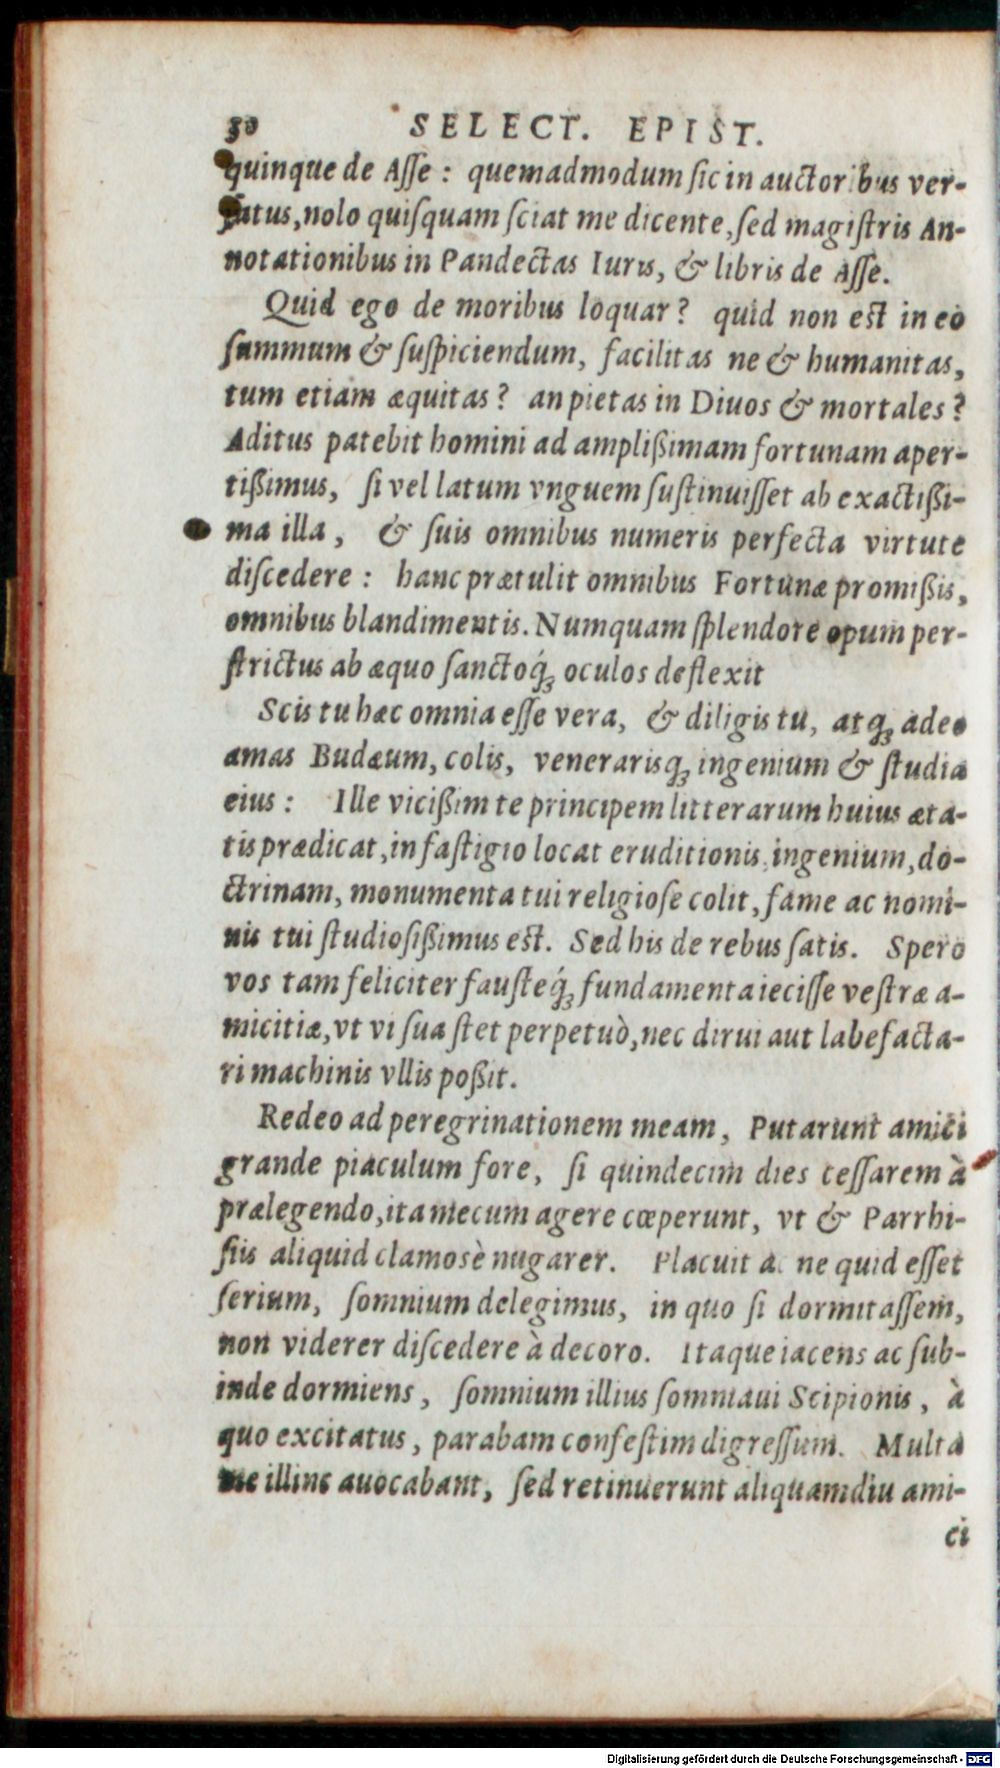 30 SELECT. EPIST.
quinque de Asse : quemadmodum sic in auctoribus ver-
satus, nolo quisquam sciat me dicente, sed magistris An-
notationibus in Pandectas Iuris, & libris de Asse.
Quid ego de moribus loquar? quid non est in eo
summum & suspiciendum, facilitas ne & humanitas,
tum etiam æquitas? an pietas in Diuos & mortales?
Aditus patebit homini ad amplißimam fortunam aper-
tißimus, si vel latum vnguem sustinuisset ab exactißi-
ma illa, & suis omnibus numeris perfecta virtute
discedere : hanc prætulit omnibus Fortunæ promißis,
omnibus blandimentis. Numquam splendore opum per-
strictus ab æquo sanctoq́ꝫ oculos deflexit
Scis tu hæc omnia esse vera, & diligis tu, atqꝫ adeo
amas Budæum, colis, venerarisqꝫ ingenium & studia
eius : Ille vicißim te principem litterarum huius æta-
tis prædicat, in fastigio locat eruditionis, ingenium, do-
ctrinam, monumenta tui religiose colit, famę ac nomi-
nis tui studiosißimus est. Sed his de rebus satis. Spero
vos tam feliciter fausteq́ꝫ fundamenta iecisse vestræ a-
micitiæ, vt vi sua stet perpetuò, nec dirui aut labefacta-
ri machinis vllis poßit.
Redeo ad peregrinationem meam, Putarunt amici
grande piaculum fore, si quindecim dies cessarem à
prælegendo, ita mecum agere cœperunt, vt & Parrhi-
siis aliquid clamosè nugarer. Placuit ac ne quid esset
serium, somnium delegimus, in quo si dormitassem,
non viderer discedere à decoro. Itaque iacens ac sub-
inde dormiens, somnium illius somniaui Scipionis, à
quo excitatus, parabam confestim digressum. Multa
me illinc auocabant, sed retinuerunt aliquamdiu ami-
ci
Digitalisierung gefördert durch die Deutsche Forschungsgemeinschaft - DFG